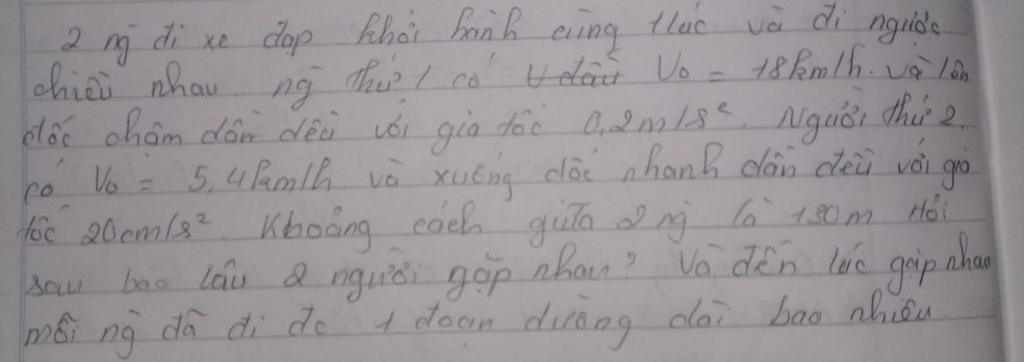 2 ng̀ đi xe đạp khởi hành cùng 1 lúc và đi ngược
chiều nhau. ng̀ thứ 1 có V đầu V₀ = 18km/h. và lên
dốc chậm dần đều với gia tốc 0,2m/s². Người thứ 2.
có V₀ = 5,4km/h và xuống dốc nhanh dần đều với gia
tốc 20cm/s². Khoảng cách giữa 2 ng̀ là 130m Hỏi
sau bao lâu 2 người gặp nhau? Và đến lúc gặp nhau
mỗi ng̀ đã đi đc 1 đoạn đường dài bao nhiêu